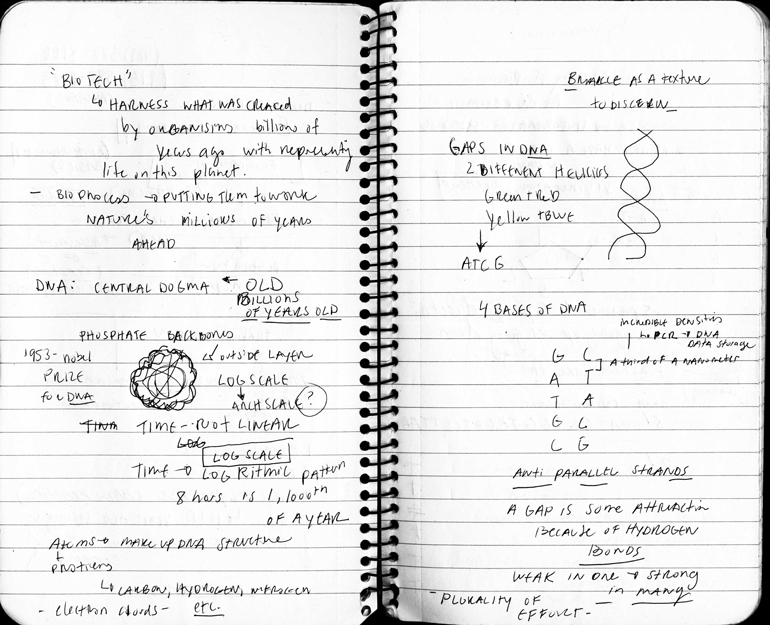 "BIOTECH"
↳ HARNESS WHAT WAS CREACED
by ORGANISING billion of
years ago with
life in this planet.
- BIOPROCESS → PUTTING THEM to WORK
NATURE'S MILLIONS OF YEARS
AHEAD
DNA: CENTRAL DOGMA ← OLD
BILLIONS
OF YEARS OLD
PHOSPHATE BACKBONES
↙ OUTSIDE LAYER
1953- nobel
PRIZE
for DNA
LOG SCALE
↓
ARCH SCALE ?
TIME - NOT LINEAR
LOG SCALE
TIME → LOG RITMIC PATTERN
8 hours is 1,1000th
OF A YEAR
ATOMS → MAKE UP DNA STRUCTURE
↓
PROTIENS
↳ CARBON, HYDROGEN, NITROGEN
- electron clouds - etc.
BRAILLE AS A TEXTURE
TO DISCERN
GAPS IN DNA
2 DIFFERENT HELICIES
Green + RED
Yellow + BLUE
↓
ATCG
4 BASES OF DNA
INCREDIBLE DENSITIES
↳ PCR → DNA
DATA STORAGE
G C
A T ] A third of A NANOMETER
T A
G C
C G
ANTI PARALLEL STRANDS
A GAP IS SOME ATTRACTION
BECAUSE OF HYDROGEN
BONDS
WEAK IN ONE → STRONG
IN MANY
- PLURALITY OF
EFFORT -